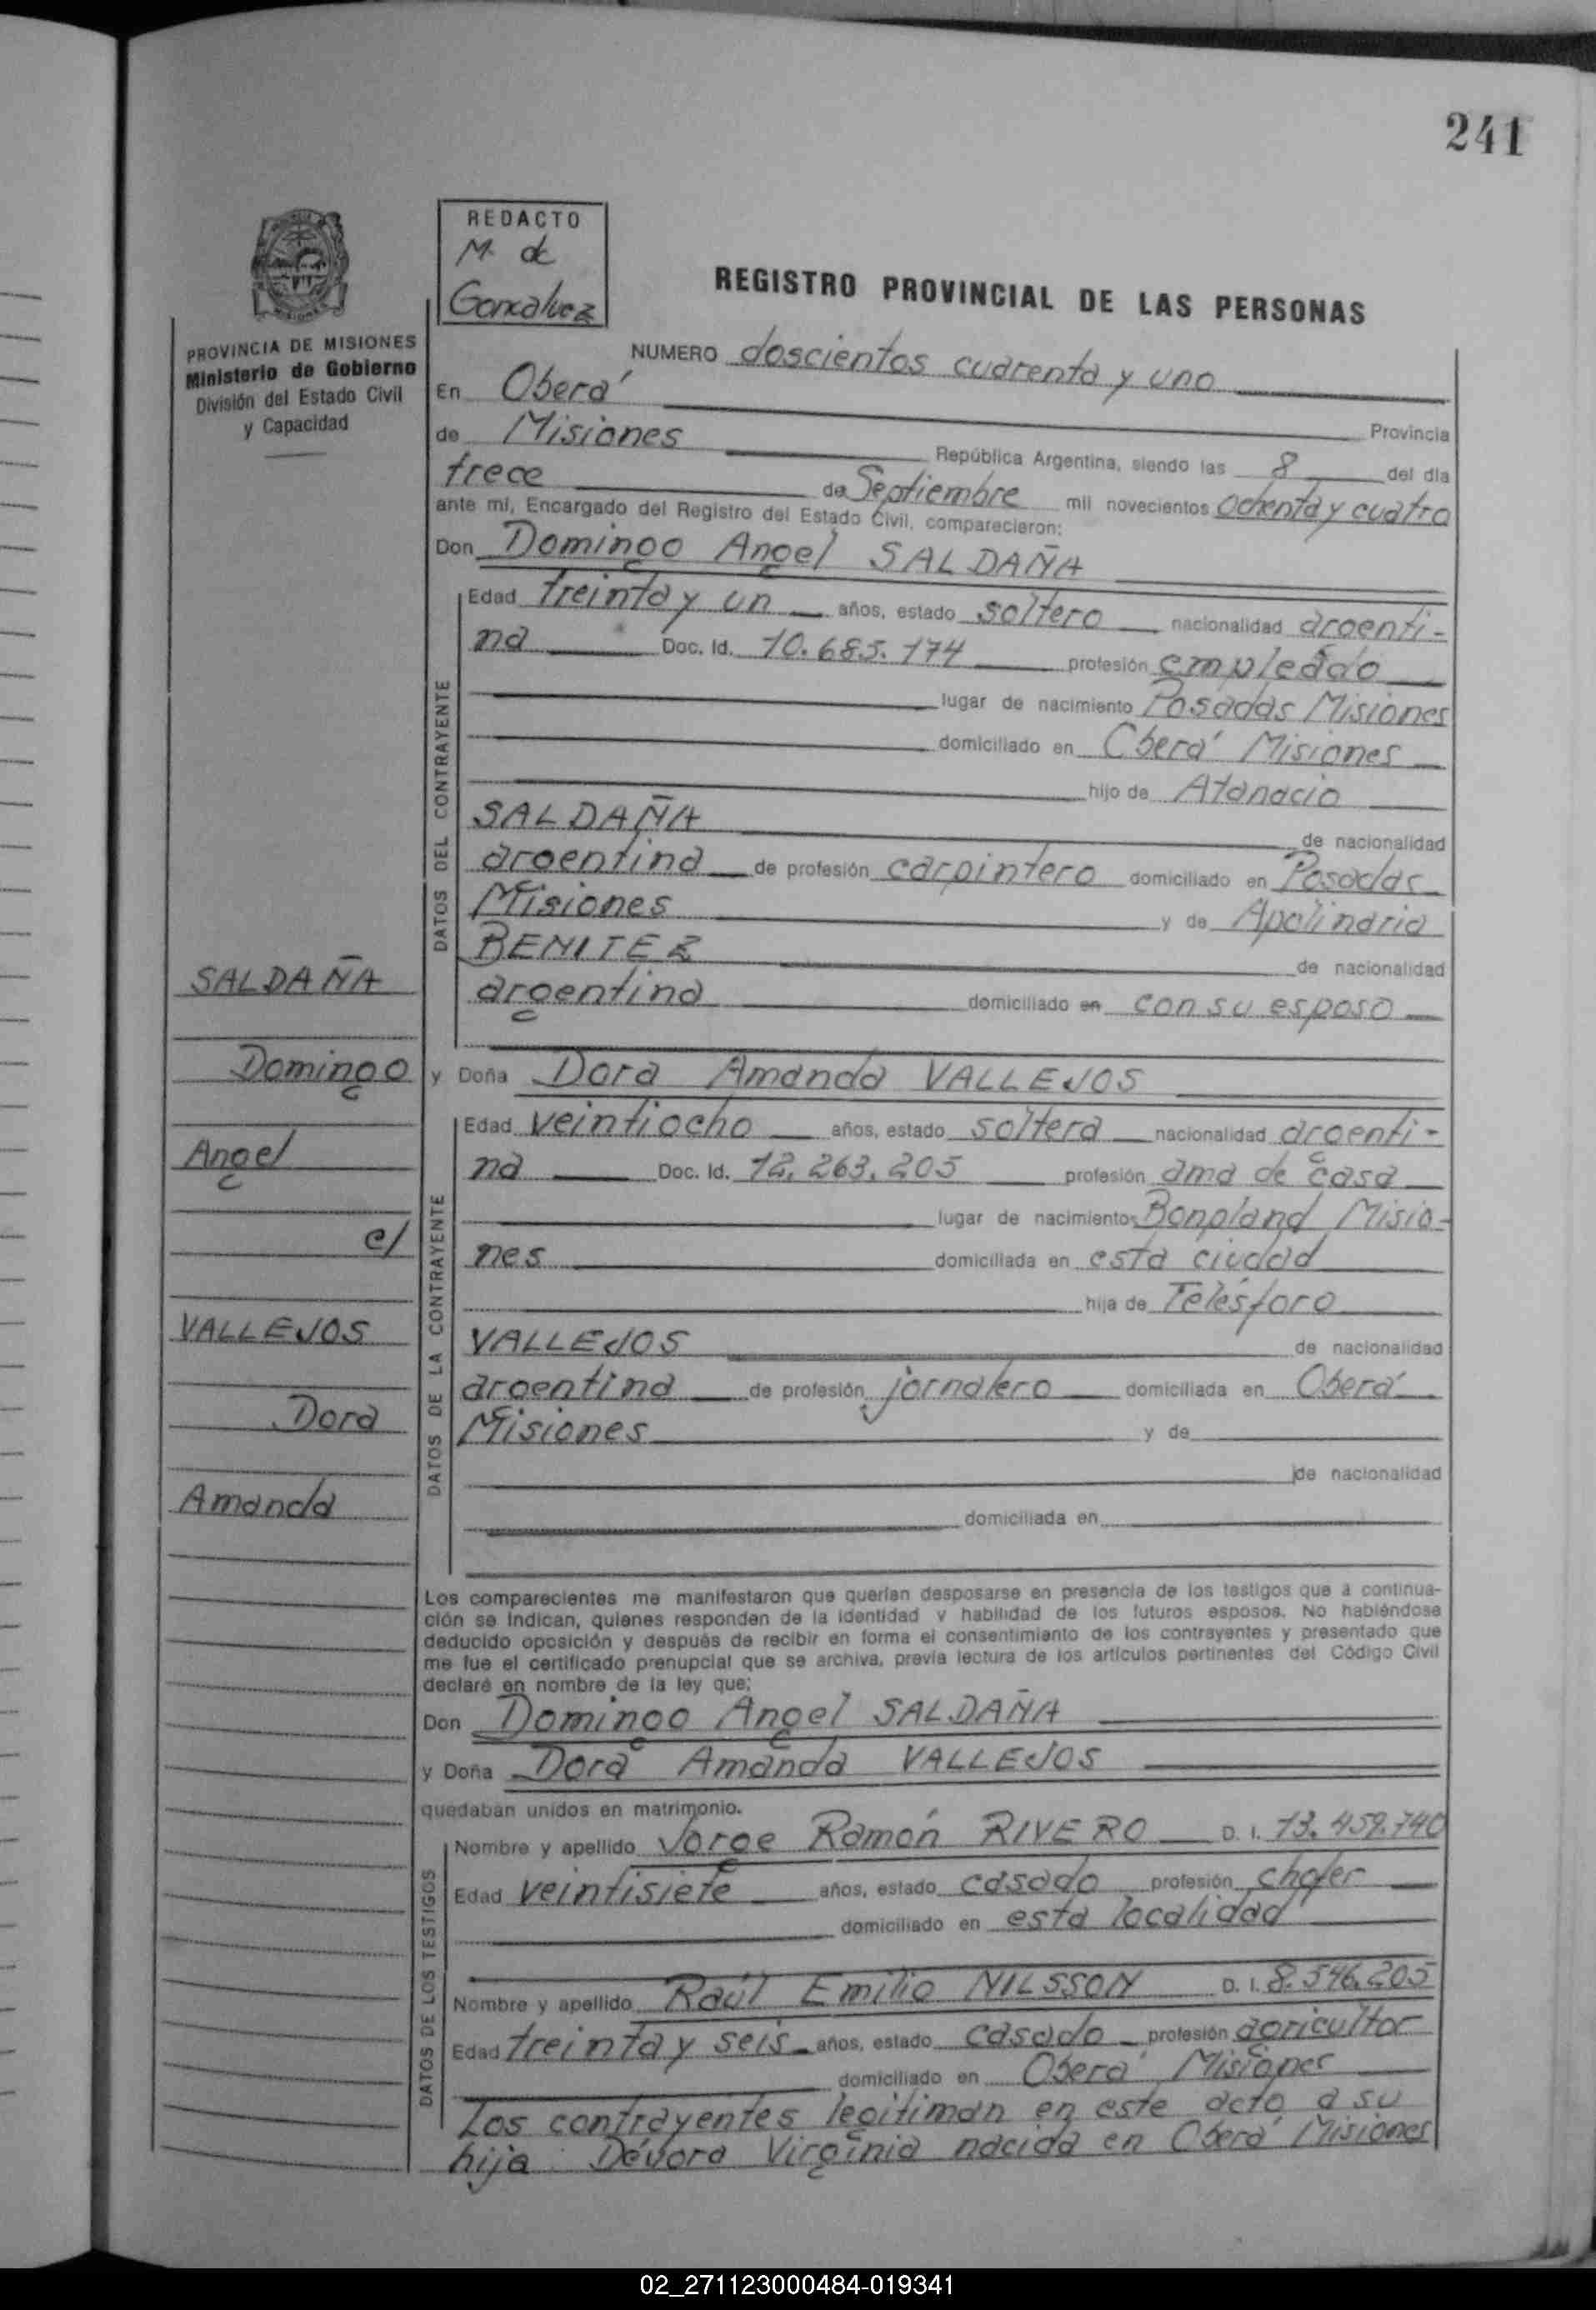 241
REDACTO
M. de
Goncalvez
REGISTRO PROVINCIAL DE LAS PERSONAS
PROVINCIA DE MISIONES
Ministerio de Gobierno
División del Estado Civil
y Capacidad
NUMERO doscientos cuarenta y uno
En Oberá
Provincia
de Misiones República Argentina, siendo las 8 del día
trece de Septiembre mil novecientos ochenta y cuatro
ante mí, Encargado del Registro del Estado Civil, comparecieron:
Don Domingo Angel SALDAÑA
DATOS DEL CONTRAYENTE
Edad treinta y un años, estado soltero nacionalidad argenti-
na Doc. Id. 10.685.174 profesión empleado
lugar de nacimiento Posadas Misiones
domiciliado en Oberá Misiones
hijo de Atanacio
SALDAÑA de nacionalidad
argentina de profesión carpintero domiciliado en Posadas
Misiones y de Apolinaria
BENITEZ de nacionalidad
argentina domiciliado en con su esposo
y Doña Dora Amanda VALLEJOS
DATOS DE LA CONTRAYENTE
Edad veintiocho años, estado soltera nacionalidad argenti-
na Doc. Id. 12.263.205 profesión ama de casa
lugar de nacimiento Bonpland Misio-
nes domiciliada en esta ciudad
hija de Telésforo
VALLEJOS de nacionalidad
argentina de profesión jornalero domiciliada en Oberá
Misiones y de
de nacionalidad
domiciliada en
SALDAÑA
Domingo
Angel
c/
VALLEJOS
Dora
Amanda
Los comparecientes me manifestaron que querían desposarse en presencia de los testigos que a continua-
ción se indican, quienes responden de la identidad y habilidad de los futuros esposos. No habiéndose
deducido oposición y después de recibir en forma el consentimiento de los contrayentes y presentado que
me fue el certificado prenupcial que se archiva, previa lectura de los artículos pertinentes del Código Civil
declaré en nombre de la ley que:
Don Domingo Angel SALDAÑA
y Doña Dora Amanda VALLEJOS
quedaban unidos en matrimonio.
DATOS DE LOS TESTIGOS
Nombre y apellido Jorge Ramón RIVERO D. I. 13.459.740
Edad veintisiete años, estado casado profesión chofer
domiciliado en esta localidad
Nombre y apellido Raúl Emilio NILSSON D. I. 8.546.205
Edad treinta y seis años, estado casado profesión agricultor
domiciliado en Oberá Misiones
Los contrayentes legitiman en este acto a su
hija: Dévora Virginia nacida en Oberá Misiones
02_271123000484-019341